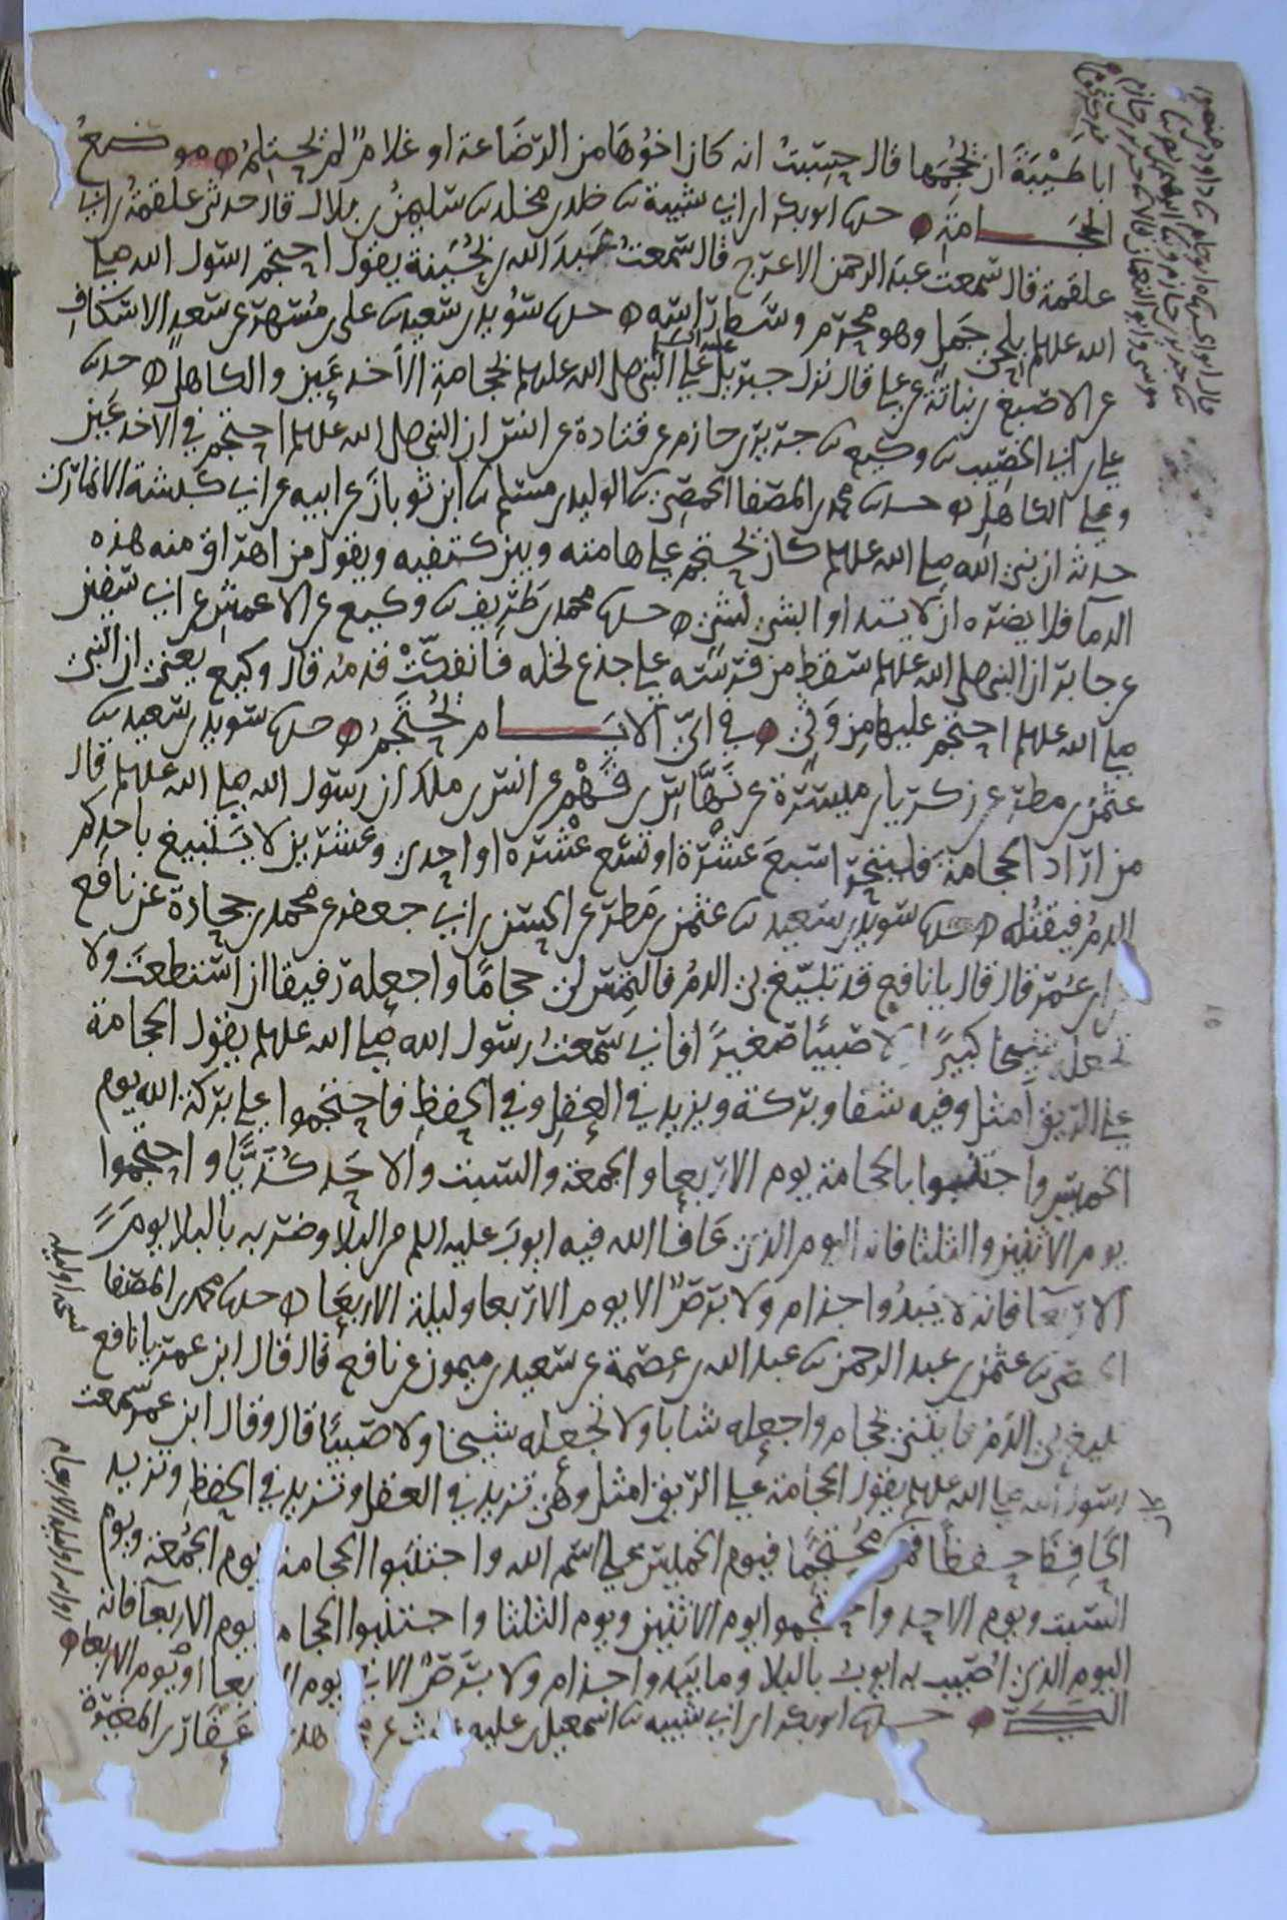 ابا طَيْبَةَ ان يحجمها قال حسبتُ انه كان اخوها من الرضاعة او غلامٌ لم يحتلم ۞ موضع
الحجامة ۞ حدثنا ابو بكر ابن ابي شيبة ثنا خلد بن مخلد ثنا سليمن بن بلال قال حدثني علقمة بن ابي
علقمة قال سمعت عبد الرحمن الاعرج قال سمعت عبد الله بن بحينة يقول احتجم رسول الله صلى
الله عليه وسلم بلحي جمل وهو محرم وسط راسه ۞ حدثنا سويد بن سعيد ثنا علي بن مسهر عن سعد الاسكاف
عن الاصبغ بن نباتة عن علي قال نزل جبريل عليه السلم علي النبي صلى الله عليه وسلم بحجامة الاخدعين والكاهل ۞ حدثنا
علي بن ابي الخصيب ثنا وكيع ثنا جرير بن حازم عن قتادة عن انس ان النبي صلى الله عليه وسلم احتجم في الاخدعين
وعلي الكاهل ۞ حدثنا محمد بن المصفا الحمصي ثنا الوليد بن مسلم ثنا ابن ثوبان عن ابيه عن ابي كبشة الانماري
حدثه ان نبي الله صلى الله عليه وسلم كان يحتجم علي هامته وبين كتفيه ويقول من اهراق منه هذه
الدما فلا يضره ان لا يتداوا بشي لشي ۞ حدثنا محمد بن طريف ثنا وكيع عن الاعمش عن ابي سفين
عن جابر ان النبي صلى الله عليه وسلم سقط من فرسه علي جذع نخله فانفكت قدمه قال وكيع يعني ان النبي
صلى الله عليه وسلم احتجم عليها من وثي ۞ في اي الايام يحتجم ۞ حدثنا سويد بن سعيد ثنا
عثمن بن مطر عن زكريا بن ميسرة عن نهاس بن قهم عن انس بن ملك ان رسول الله صلى الله عليه وسلم قال
من اراد الحجامة فليتحر اسبع عشرة او تسع عشرة او احدى وعشرين لا يتبيغ باحدكم
الدم فيقتله ۞ حدثنا سويد بن سعيد ثنا عثمن بن مطر عن الحسن بن ابي جعفر عن محمد بن جحادة عن نافع
عن ابن عمر قال قال يا نافع قد تبيغ بي الدم فالتمس لي حجاما واجعله رفيقا ان استطعت ولا
تجعله شيخا كبيرًا ولا صبيًا صغيرًا افاني سمعت رسول الله صلى الله عليه وسلم يقول الحجامة
علي الريق امثل وفيه شفا وبركة ويزيد في العقل وفي الحفظ فاحتجموا علي بركة الله يوم
الخميس واجتنبوا بالحجامة يوم الاربعا والجمعة والسبت والاحد تحريا واحتجموا
يوم الاثنين والثلثا فانه اليوم الذي عافا الله فيه ايوب عليه السلم من البلا وضربه بالبلا يوم
الاربعآ فانه لا يبدوا جذام ولا برص الا يوم الاربعا وليلة الاربعا ۞ حدثنا محمد بن المصفا
الحمصي ثنا عثمن بن عبد الرحمن ثنا عبد الله بن عصمة عن سعيد بن ميمون عن نافع قال قال ابن عمر يا نافع
تبيغ بي الدم فايتني بحجام واجعله شابا ولا تجعله شيخا ولا صبيا قال وقال ابن عمر سمعت
رسول الله صلى الله عليه وسلم يقول الحجامة علي الريق امثل وهي تزيد في العقل وتزيد في الحفظ وتزيد
الحافظ حفظًا فمن محتجما فيوم الخميس علي اسم الله واجتنبوا الحجامة يوم الجمعة ويوم
السبت ويوم الاحد واحتجموا يوم الاثنين ويوم الثلثا واجتنبوا الحجامة يوم الاربعآ فانه
اليوم الذي اصيب به ايوب بالبلا وما يبدوا جذام ولا برص الا في يوم الاربعا او يوم الاربعا
الكي ۞ حدثنا ابو بكر ابن ابي شيبه ثنا اسمعيل بن عليه عن عقار بن المغيرة